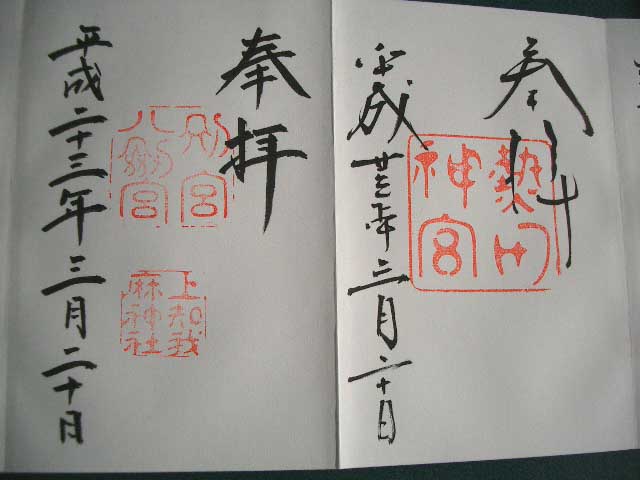 奉拝
熱田
神宮
平成廿三年三月二十日
奉拝
別宮
八劔宮
上知我
麻神社
平成二十三年三月二十日